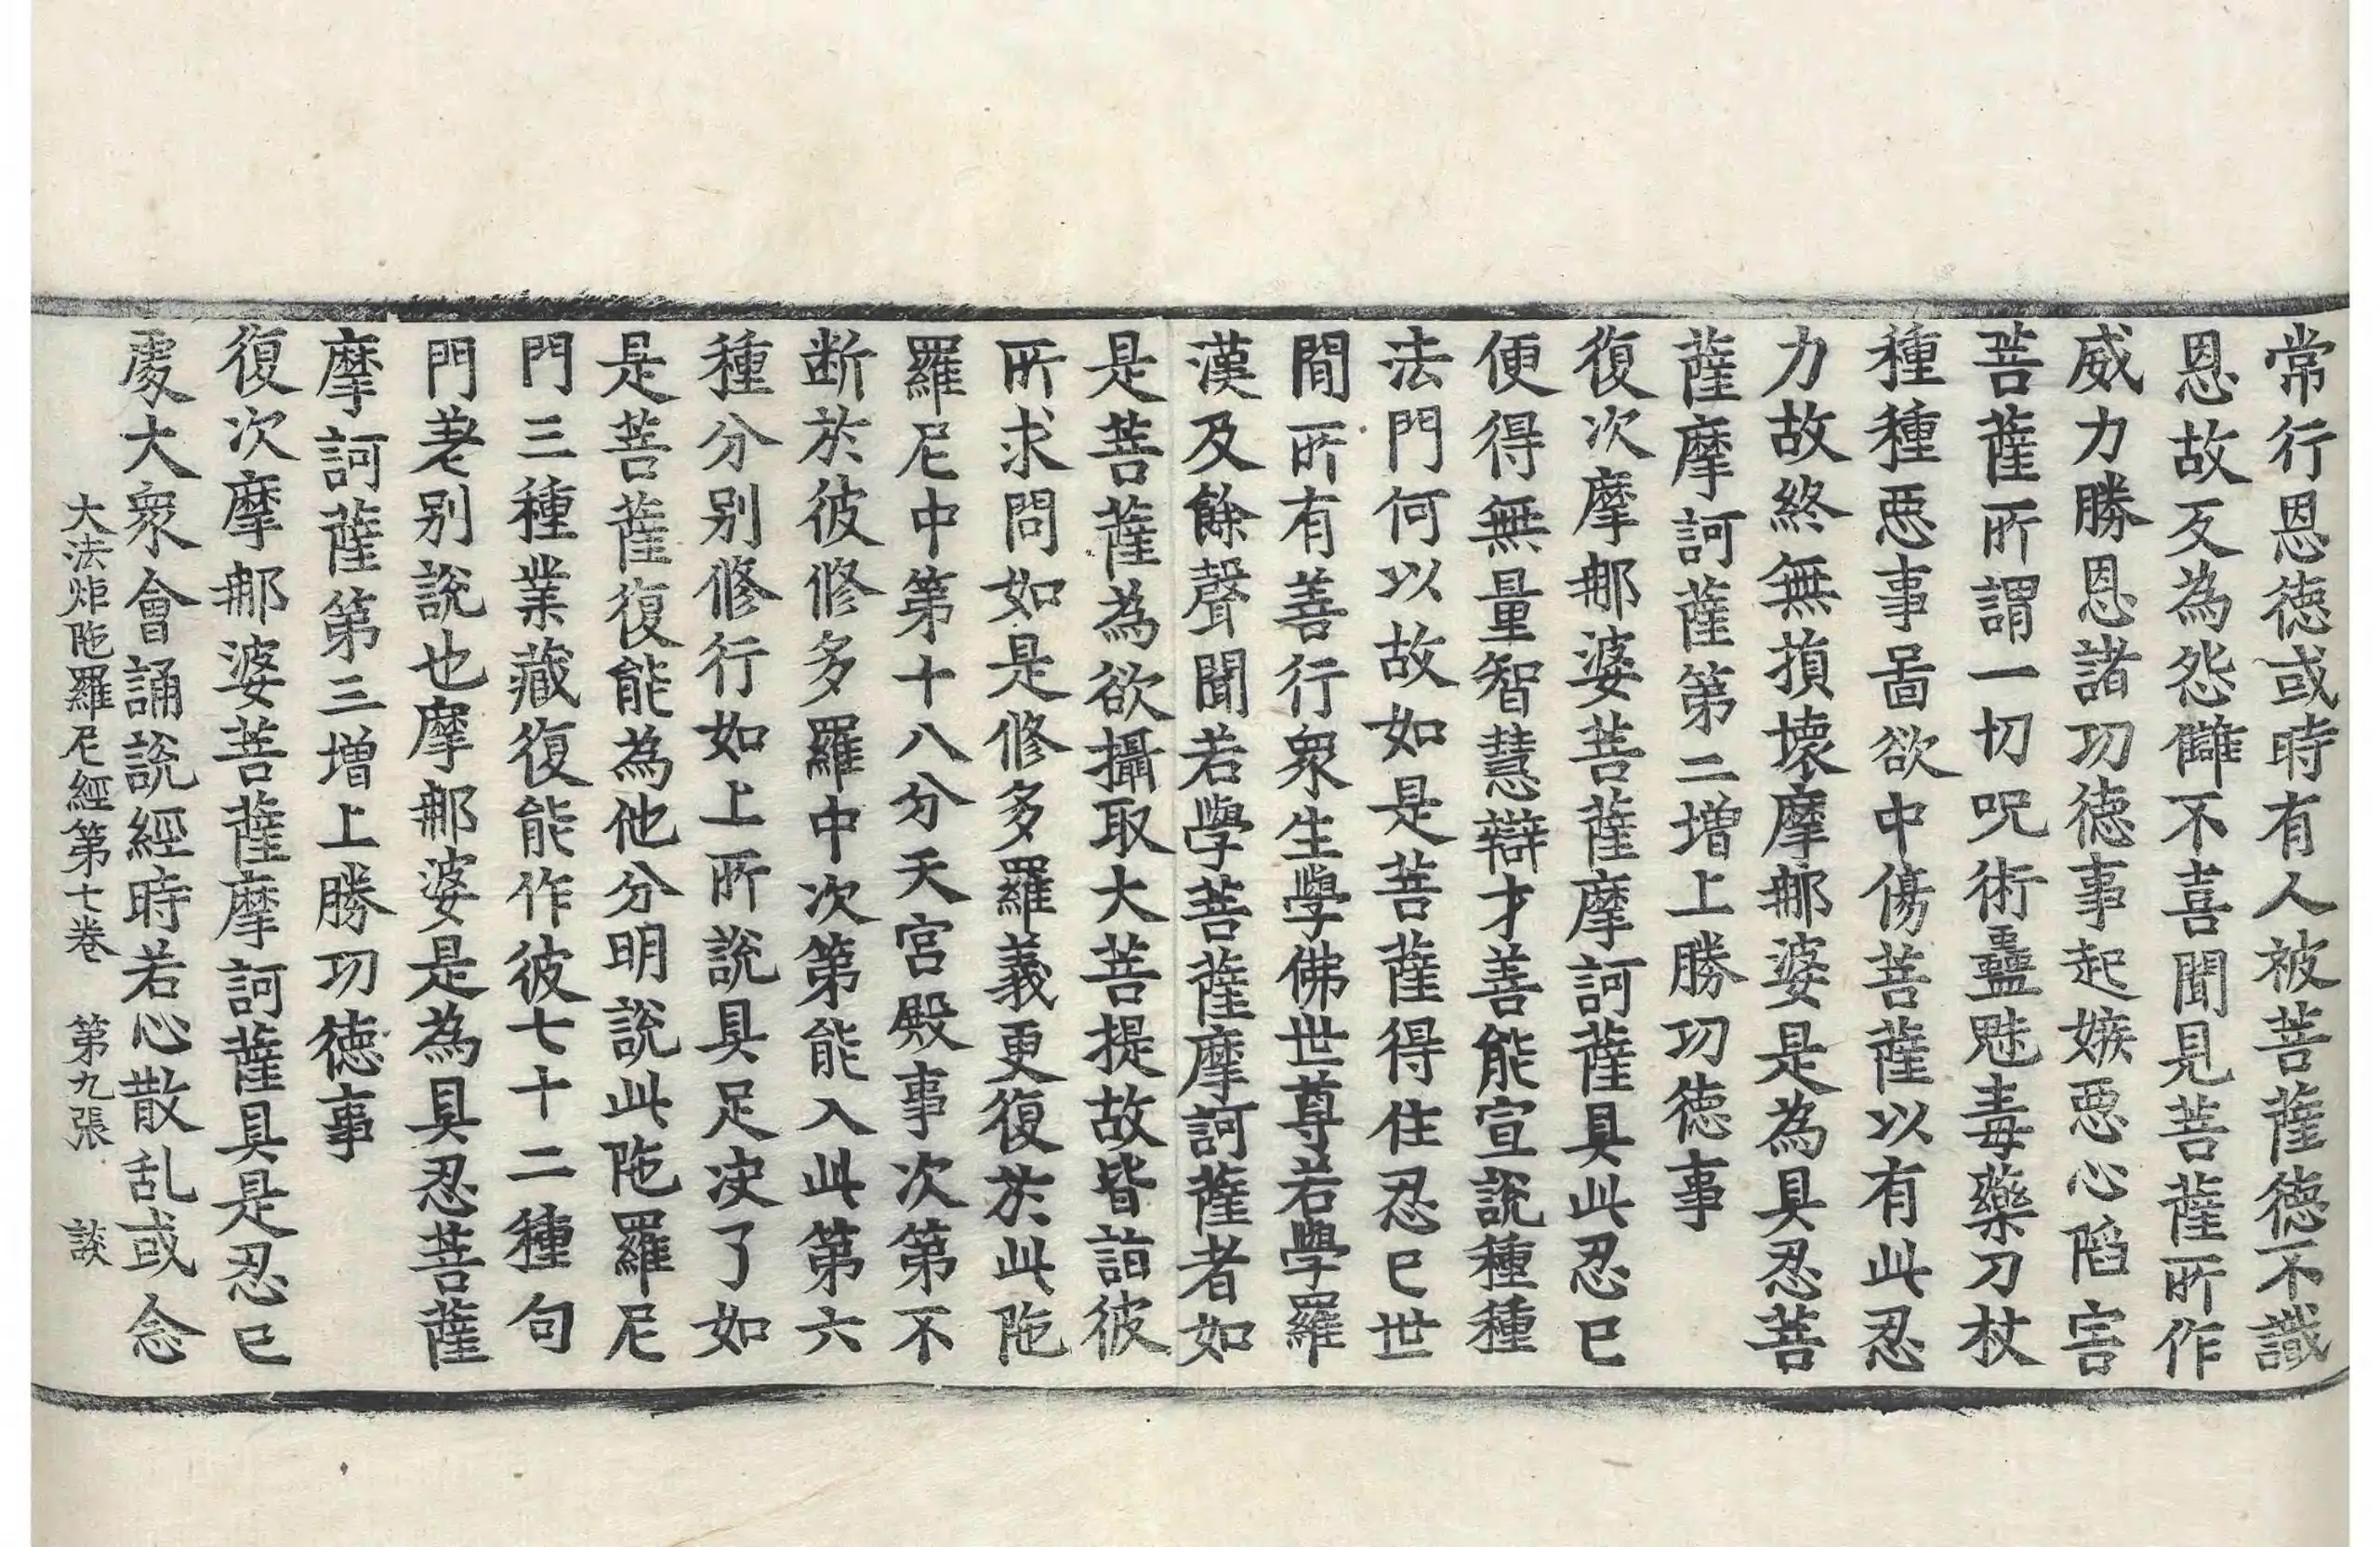 常行恩徳或時有人被菩薩徳不識
恩故反為怨讎不喜聞見菩薩所作
威力勝恩諸功徳事起嫉悪心陷害
菩薩所謂一切呪術蠱魅毒藥刀杖
種種悪事啚欲中傷菩薩以有此忍
力故終無損壞摩郍婆是為具忍菩
薩摩訶薩第二増上勝功徳事
復次摩郍婆菩薩摩訶薩具此忍已
便得無量智慧辯才善能宣説種種
法門何以故如是菩薩得住忍已世
間所有善行衆生學佛世尊若學羅
漢及餘聲聞若學菩薩摩訶薩者如
是菩薩為欲攝取大菩提故皆詣彼
所求問如是修多羅義更復於此陁
羅尼中第十八分天宮殿事次第不
断於彼修多羅中次第能入此第六
種分别修行如上所說具足决了如
是菩薩復能為他分明説此陁羅尼
門三種業藏復能作彼七十二種句
門差别說也摩郍婆是為具忍菩薩
摩訶薩第三増上勝功徳事
復次摩郍婆菩薩摩訶薩具是忍已
處大衆會誦説經時若心散乱或念
大法炬陁羅尼經第七卷 第九張 談